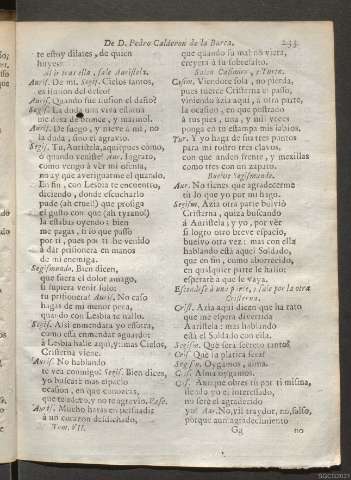 De D. Pedro Calderon de la Barca. 233
te estoy dilates, de quien
huyes?
Al ir tras ella, sale Auristela.
Aurif. De mi. Segis. Cielos santos,
es ilusion del deseo?
Aurif. Quando fue ilusion el daño?
Segis. La duda una viva estatua
me dexa de bronce, y marmol.
Aurif. De fuego, y nieve à mì, no
la duda, sino el agravio.
Segis. Tu, Auristela, aqui? pues còmo,
ò quando veniste? Aur. Ingrato,
como vengo à vèr mi ofensa,
no ay que averiguarme el quando.
En fin, con Lesbia te encuentro,
diciendo, donde escucharlo
pude (ah cruel!) que prosiga
el gusto con que (ah tyrano!)
la estabas oyendo: bien
me pagas, si lo que passo
por ti, pues por ti he venido
à dar prisionera en manos
de mi enemiga.
Segismundo. Bien dicen,
que fuera el dolor amago,
si supiera venir solo:
tu prisionera! Aurif. No caso
hagas de mi menor pena,
quando con Lesbia te hallo.
Segis. Assi enmendara yo essotra,
como essa enmendar aguardo:
à Lesbia hallè aqui, y: mas Cielos,
Cristerna viene.
Aurif. No hablando
te vea conmigo: Segis. Bien dices,
yo buscarè mas espacio
ocasion, en que conozcas,
que te adoro, y no te agravio. Vase.
Aurif. Mucho haràs en persuadir
à un corazon desdichado,
Tom. VII.
que quando su mal no viera,
creyera à su sobresalto.
Salen Casimiro, y Turin.
Casim. Viendote sola, no pierda,
pues tuerce Cristerna el passo,
viniendo àzia aqui, à otra parte,
la ocasion, en que postrado
à tus pies, una, y mil veces
ponga en tu estampa mis labios.
Tur. Y yo haga de sus tres puntos
para mi rostro tres clavos,
con que anden frente, y mexillas
como tres con un zapato.
Buelve Segismundo.
Aur. No tienes que agradecerme
tù lo que yo por mì hago.
Segism. Azia otra parte bolviò
Cristerna, quizà buscando
à Auristela; y yo, por vèr
si logro otro breve espacio,
buelvo otra vez: mas con ella
hablando està aquel Soldado,
que en fin, como aborrecido,
en qualquier parte le hallo:
esperarè à que se vaya.
Escondese à una parte, y sale por la otra
Cristerna.
Crist. Azia aqui dicen que ha rato
que me espera divertida
Auristela: mas hablando
està el Soldado con ella.
Segism. Què serà secreto tanto?
Cris. Què la platica serà?
Segism. Oygamos, alma.
Cris. Alma oygamos.
Cas. Aunque obres tù por ti misma,
siendo yo el interessado,
no serè el agradecido
yo? Aur. No, vil traydor, no, falso,
porque aun agradecimiento
Gg
no